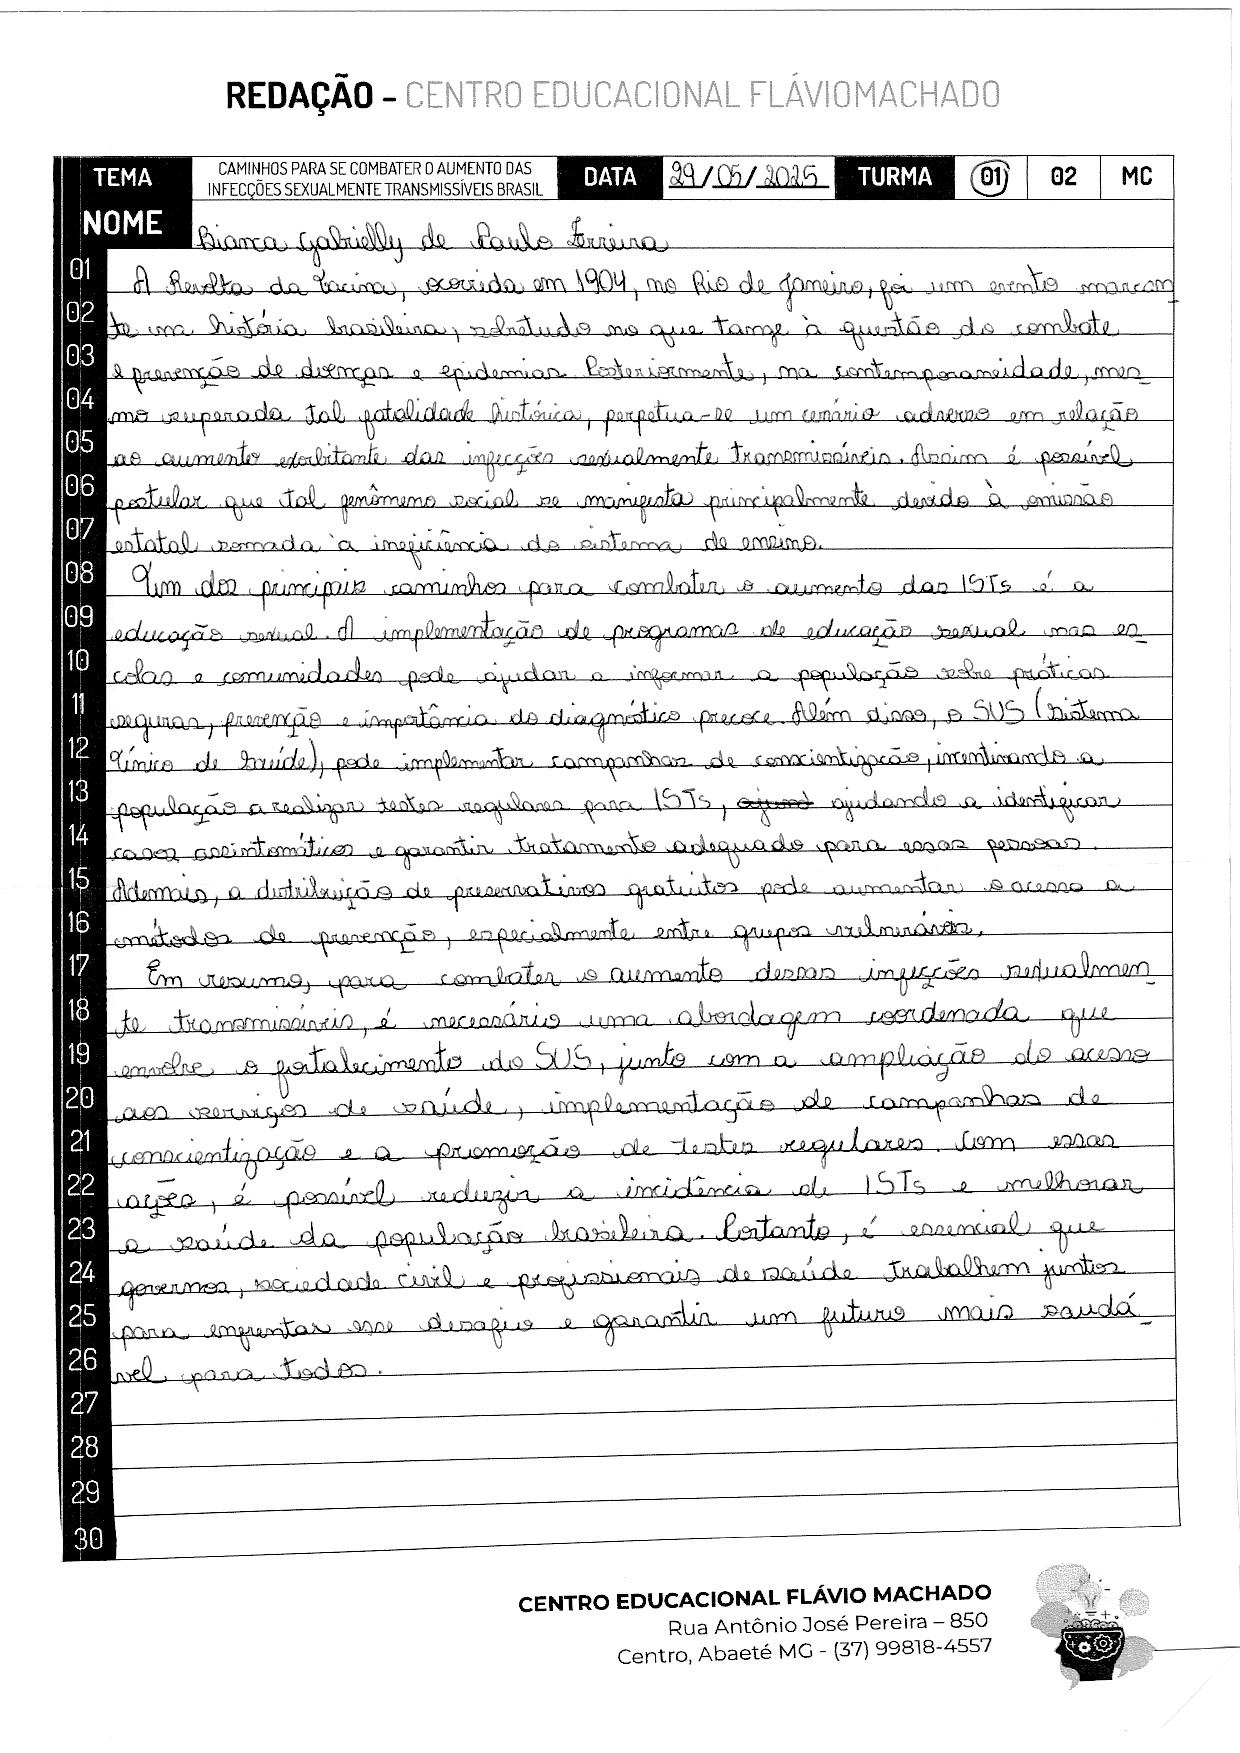 REDAÇÃO - CENTRO EDUCACIONAL FLÁVIOMACHADO
TEMA
CAMINHOS PARA SE COMBATER O AUMENTO DAS
INFECÇÕES SEXUALMENTE TRANSMISSÍVEIS BRASIL
DATA 29/05/2025 TURMA 01 02 MC
NOME Bianca Gabrielly de Paulo Ferreira
01 A Revolta da Vacina, ocorrida em 1904, no Rio de Janeiro, foi um evento marcan
02 te na história brasileira, sobretudo no que tange à questão do combate
03 e prevenção de doenças e epidemias. Posteriormente, na contemporaneidade, mes_
04 mo superada tal fatalidade histórica, perpetua-se um cenário adverso em relação
05 ao aumento exorbitante das infecções sexualmente transmissíveis. Assim é possível
06 postular que tal fenômeno social se manifesta principalmente devido à omissão
07 estatal somada à ineficiência do sistema de ensino.
08 Um dos principais caminhos para combater o aumento das ISTs é a
09 educação sexual. A implementação de programas de educação sexual nas es_
10 colas e comunidades pode ajudar a informar a população sobre práticas
11 seguras, prevenção e importância do diagnóstico precoce. Além disso, o SUS (Sistema
12 Único de Saúde), pode implementar campanhas de conscientização, incentivando a
13 população a realizar testes regulares para ISTs, ajudando a identificar
14 casos assintomáticos e garantir tratamento adequado para essas pessoas.
15 Ademais, a distribuição de preservativos gratuitos pode aumentar o acesso a
16 métodos de prevenção, especialmente entre grupos vulneráveis.
17 Em resumo, para combater o aumento dessas infecções sexualmen_
18 te transmissíveis, é necessário uma abordagem coordenada que
19 envolve o fortalecimento do SUS, junto com a ampliação do acesso
20 aos serviços de saúde, implementação de campanhas de
21 conscientização e a promoção de testes regulares. Com essas
22 ações, é possível reduzir a incidência de ISTs e melhorar
23 a saúde da população brasileira. Portanto, é essencial que
24 governos, sociedade civil e profissionais de saúde trabalhem juntos
25 para enfrentar esse desafio e garantir um futuro mais saudá_
26 vel para todos.
27
28
29
30
CENTRO EDUCACIONAL FLÁVIO MACHADO
Rua Antônio José Pereira – 850
Centro, Abaeté MG - (37) 99818-4557